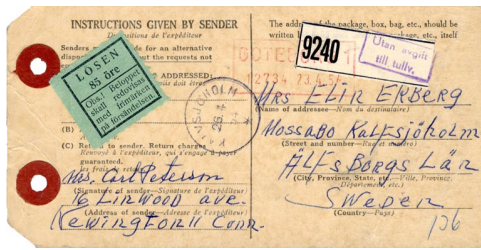 INSTRUCTIONS GIVEN BY SENDER
Dispositions de l'expéditeur
Senders
LÖSEN
85 öre
Obs.! Beloppet
skall redovisas
med frimärken
på försändelsen.
ADDRESSED:
(B)
(C) Return to sender. Return charges
Renvoyé à l'expéditeur, qui s'engage à payer
guaranteed.
les frais de retour.
Mrs. Carl Peterson
(Signature of sender—Signature de l'expéditeur)
16 Linwood Ave.
(Address of sender—Adresse de l'expéditeur)
Newington 11 Conn.
The address of the package, box, bag, etc., should be
written
package, etc., itself
GÖTEBORG 1
9240
Utan avgift
till tullv.
12734 73.4.54
Mrs Elin Ekberg
(Name of addressee—Nom du destinataire)
Mossabo Kallsjöholm
(Street and number—Rue et numéro)
Älfsborgs Län
(City, Province, State, etc.—Ville, Province,
Département, etc.)
Sweden
(Country—Pays)
136